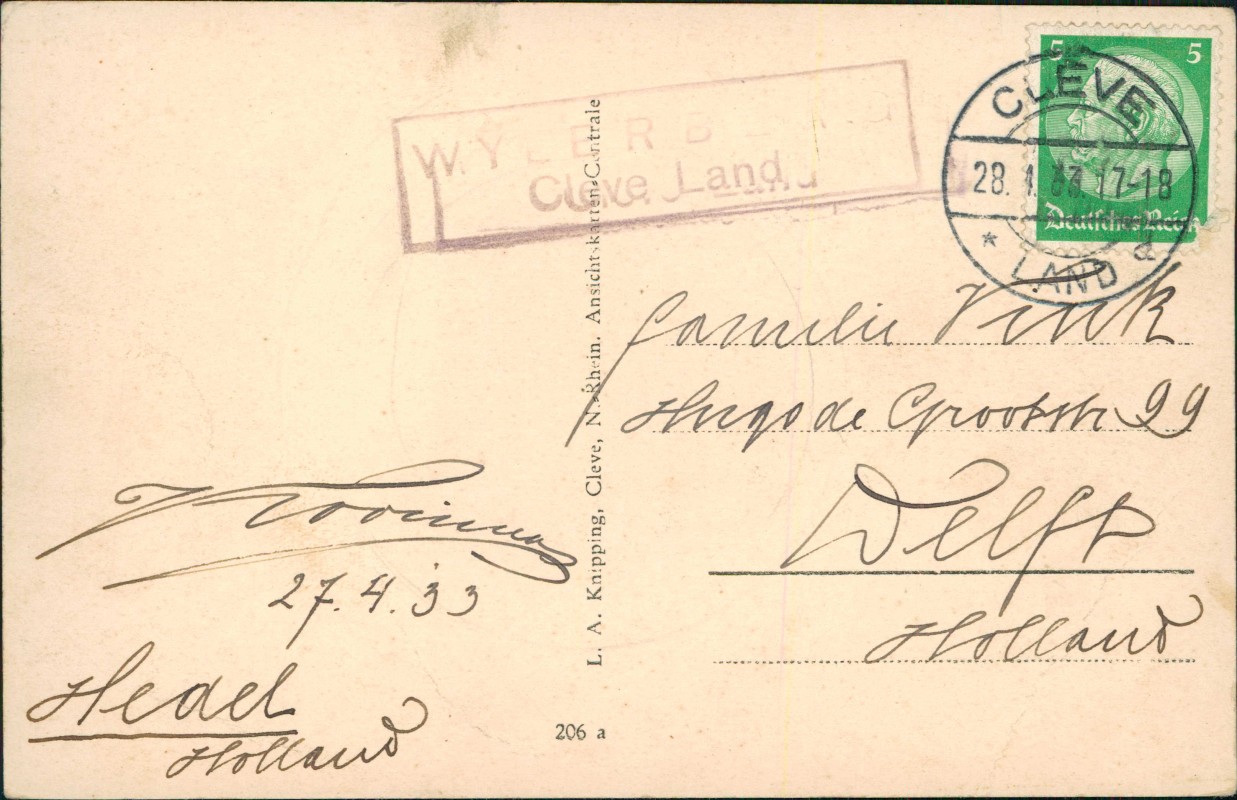 WYLERBERG
Cleve Land
CLEVE
28. 4. 33. 17-18
* LAND d
5 5
Deutsches Reich
Familie Vink
Hugo de Grootstr 99
Delft
Holland
27.4.33
Hedel
Holland
L. A. Knipping, Cleve, N.-Rhein. Ansichtskarten-Centrale
206 a